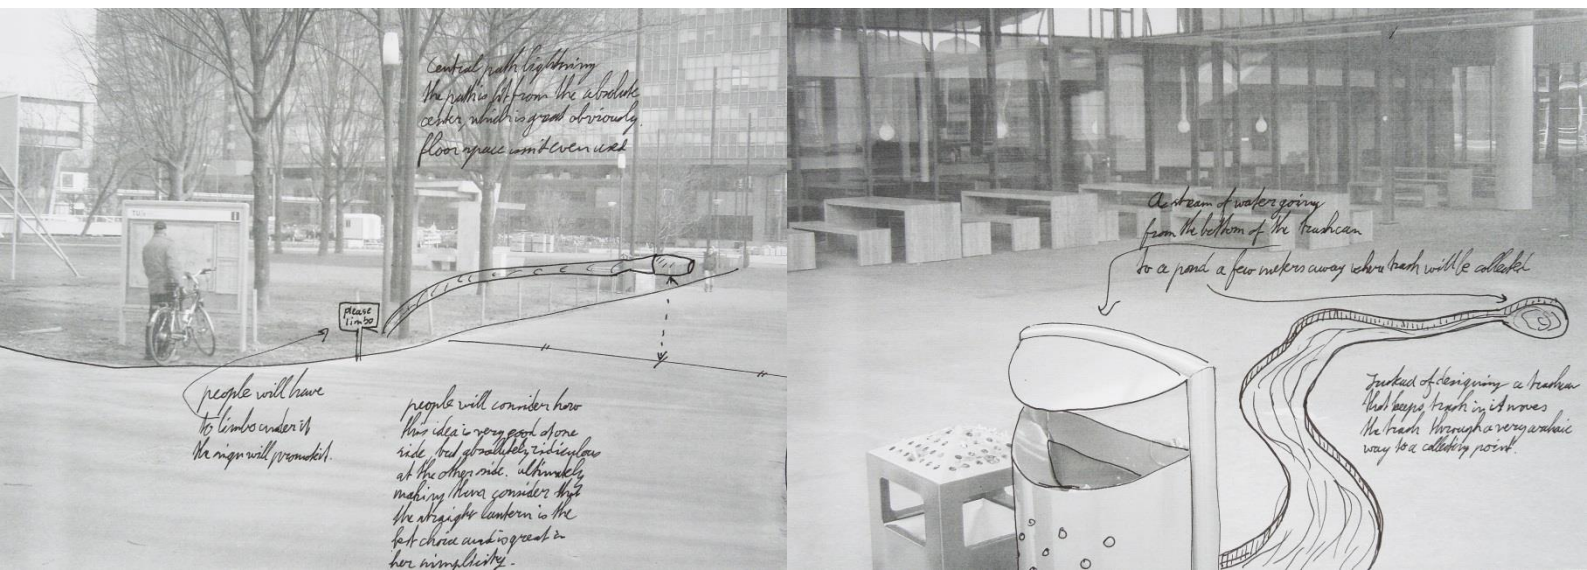 central path lightning
the path is lit from the absolute
center, which is great obviously.
floor space isn't even used
please
limbo
people will have
to limbo under it
the sign will promote it.
people will consider how
this idea is very good at one
side, but absolutely ridiculous
at the other side. ultimately
making them consider that
the straight lantern is the
best choice and is great in
her simplicity.
A stream of water going
from the bottom of the trashcan
to a pond a few meters away where trash will be collected
Instead of designing a trashcan
that keeps trash in it moves
the trash through a very archaic
way to a collecting point.